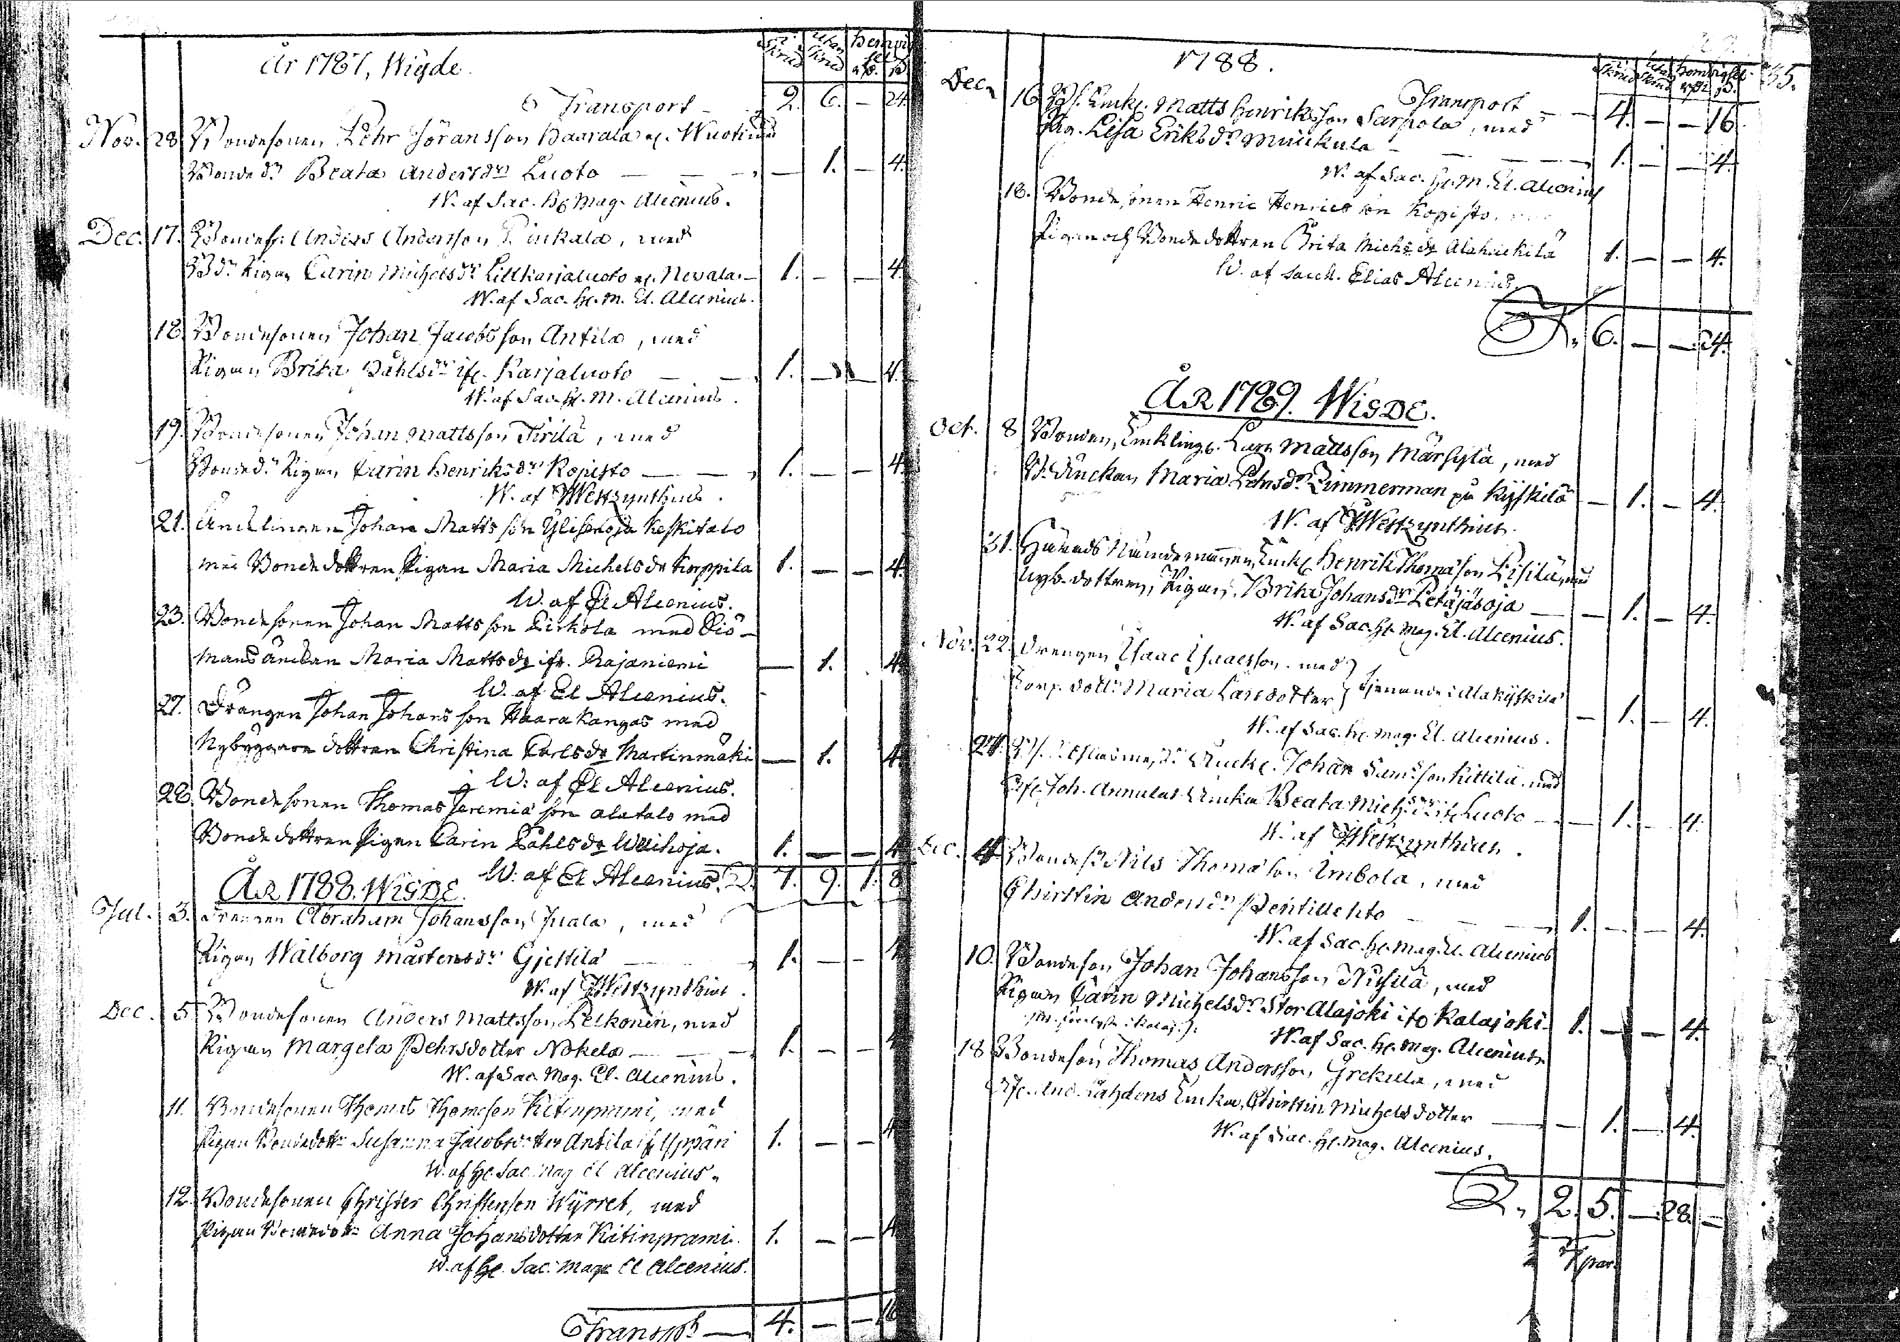 År 1787, Wigde.
i Skrud utan Skrud
Transport 2. 6. — 24.
Nov. 28 Bondesonen Pehr Jöransson Haarala
Bonded:r Beata Andersd:r Luoto — — — 1. — 4.
W. af Sac. Hr Mag. Alcenius.
Dec. 17. Bondes: Anders Andersson Pinkala, med
Bd:r Pigan Carin Michelsd:r Lillkarjaluoto Nevala — 1. — — 4.
W. af Sac. Hr. M. El. Alcenius.
18. Bondesonen Johan Jacobsson Antila, med
Pigan Brita Påhlsd:r ifr. Karjaluoto — — 1. — — 4.
W. af Sac. Hr. M. Alcenius.
19. Bondesonen Johan Mattsson Tirilä, med
Bonded:r Pigan Carin Henriksd:r Kopisto — — 1. — — 4.
W. af Westzynthius.
21. Änklingen Johan Matts son Ylisenoja Keskitalo
med Bonde dottren Pigan Maria Michels dr Korppila 1. — — 4.
W. af El Alcenius.
23. Bonde sonen Johan Matts son Pirkola med Sjö-
mans änckan Maria Matts dr ifr. Rajaniemi — 1. 4.
W. af El Alcenius.
27. Drängen Johan Johans son Haarakangas med
Nybyggare dottren Christina Carls dr Martinmäki — 1. 4.
W. af El Alcenius.
28. Bonde sonen Thomas Jeremiæ son Alatalo med
Bonde dottren Pigan Carin Påhls dr Weihoja. 1. — — 4
W. af El Alcenius. 7. 9. 1. 8
ÅR 1788. WIGDE.
Jul. 3. Drengen Abraham Johansson Juala, med
Pigan Walborg Mårtensd:r Gjettilä — 1. — — 4
W. af Westzynthius.
Dec. 5 Bondesonen Anders Mattsson Pelkonin, med
Pigan Margeta Pehrsdotter Nokela — — 1. — — 4
W. af Sac. Mag. El. Alcenius.
11. Bondesonen Thomas Thomeson Kitinprami, med
Pigan Bondedottr Susanna Jacobsdotter Antila ifr Yppäri 1. — — 4
W. af Hr. Sac. Mag El Alcenius.
12. Bondesonen Christer Christersson Wyrret, med
Pigan Anna Johansdotter Kitinprami. 1. — — 4
W. af Hr. Sac. Mag El Alcenius.
Transpt — 4. — — 16
1788. 55.
Transport — — 4. — — 16.
Dec. 16. Enkl. Matts Henriksson Sarpola, med
Pig. Lisa Eriksd:r Muickula — — — 1. — — 4.
W. af Sac. Hr. M. El. Alcenius
18. Bonde sonen Henric Henrics son Kopisto.
Pigan och Bondedottren Brita Michs dr Alahuikila 1. — — 4.
W. af Sacell. Elias Alcenius
6. — — 24.
ÅR 1789. WIGDE.
Oct. 8 Bonden, Enkling. Lars Mattsson Märsylä, med
Enckan Maria Pehrsd:r Zimmerman på Kyskilä — 1. — 4.
W. af Westzynthius.
31. Härads Nämdemannen, Enckl. Henrik Thomasson Pisilä, med
Nyb. dottren, Pigan, Brita Johansd:r Petäjäsoja — — 1. — 4.
W. af Sac. Hr. Mag. El. Alcenius.
Nov. 22. Drengen Isaac Isacsson. med tjenande i Alakyskilä
dott:r Maria Larsdotter — 1. — 4.
W. af Sac. Hr. Mag. El. Alcenius.
27. Enckl. Johan Sams:son Kittilä. med
Joh. Annulas Encka Beata Michsd:r Luoto — — 1. — 4.
W. af Westzynthius.
Dec. 4. Bondes: Nils Thomasson Embola, med
Christin Andersd:r Penttilehto — — — 1. — — 4.
W. af Sac. Hr. Mag. El. Alcenius
10. Bondeson Johan Johansson Niskla, med
Pigan Carin Michelsd:r Stor Alajoki ifr Kalajoki. 1. — — 4.
W. af Sac. Hr. Mag. Alcenius.
18. Bondeson Thomas Andersson, Grekula, med
Encka, Christin Michelsdotter — 1. — 4.
W. af Sac. Hr. Mag. Alcenius.
2. 5. — 28. —
7 par.